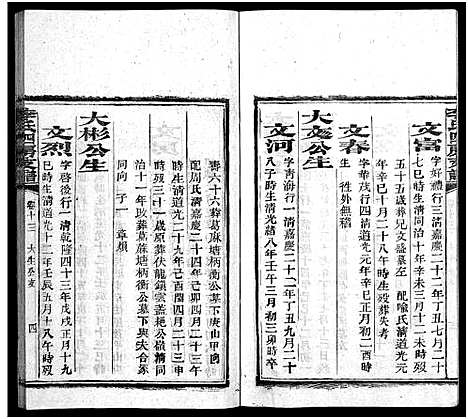 李氏四房支譜
文富
字好禮行三清嘉慶二十二年丁丑九月二十
七巳時生清同治十年辛未三月十二未時歿
五十五歲葬兄文盛墓左 配喻氏清道光元
年十月二十八午時生歿葬失考
文春
字華茂行四清道光元年辛巳正月初二酉時
生 性外無稽
大交公生
文河
字青海行一清嘉慶二十二年丁丑九月二十
八子時生清光緒八年壬午三月初三卯時卒
壽六十六葬葛麻塘柄衡公墓下庚山甲向
配周氏清嘉慶二十四年己卯四月二十三申
時生清道光二十九年己酉閏四月二十三申
時歿三十一歲原葬伏龍鎮雲蓋嶺同
治十一年改葬葛麻塘柄衡公墓下與夫合冢
同向 子一 章顯
大彬公生
文烈
字啓後行一清乾隆四十三年戊戌正月十九
巳時生清道光十二年壬辰五月十八午時歿
李氏四房支譜
卷十三 大生公支
四